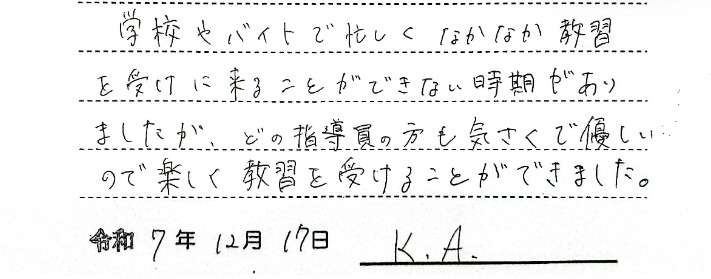 学校やバイトで忙しく なかなか教習
を受けに来ることができない時期があり
ましたが、どの指導員の方も気さくで優しい
ので楽しく教習を受けることができました。
令和 7年 12月 17日 K.A.